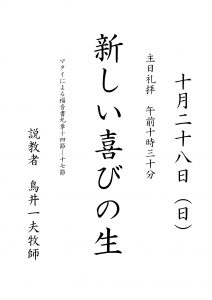 十月二十八日（日）
主日礼拝　午前十時三十分
新しい喜びの生
マタイによる福音書九章十四節―十七節
説教者　鳥井一夫牧師